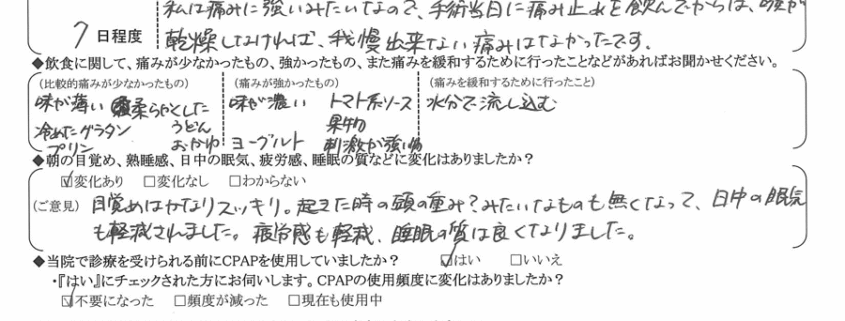 私は痛みに強いみたいなので、手術当日に痛み止めを飲んでからは、喉が
7 日程度 乾燥しなければ、我慢出来ない痛みはなかったです。
◆飲食に関して、痛みが少なかったもの、強かったもの、また痛みを緩和するために行ったことなどがあればお聞かせください。
(比較的痛みが少なかったもの) (痛みが強かったもの) (痛みを緩和するために行ったこと)
味が薄い 柔らやとした 味が濃い トマト系ソース 水分で流し込む
冷めたグラタン うどん 果物
プリン おかゆ ヨーグルト 刺激が強い物
◆朝の目覚め、熟睡感、日中の眠気、疲労感、睡眠の質などに変化はありましたか?
☑変化あり □変化なし □わからない
(ご意見) 目覚めはかなりスッキリ。起きた時の頭の重み?みたいなものも無くなって、日中の眠気
も軽減されました。疲労感も軽減、睡眠の質は良くなりました。
◆当院で診療を受けられる前にCPAPを使用していましたか? ☑はい □いいえ
・『はい』にチェックされた方にお伺いします。CPAPの使用頻度に変化はありましたか?
☑不要になった □頻度が減った □現在も使用中